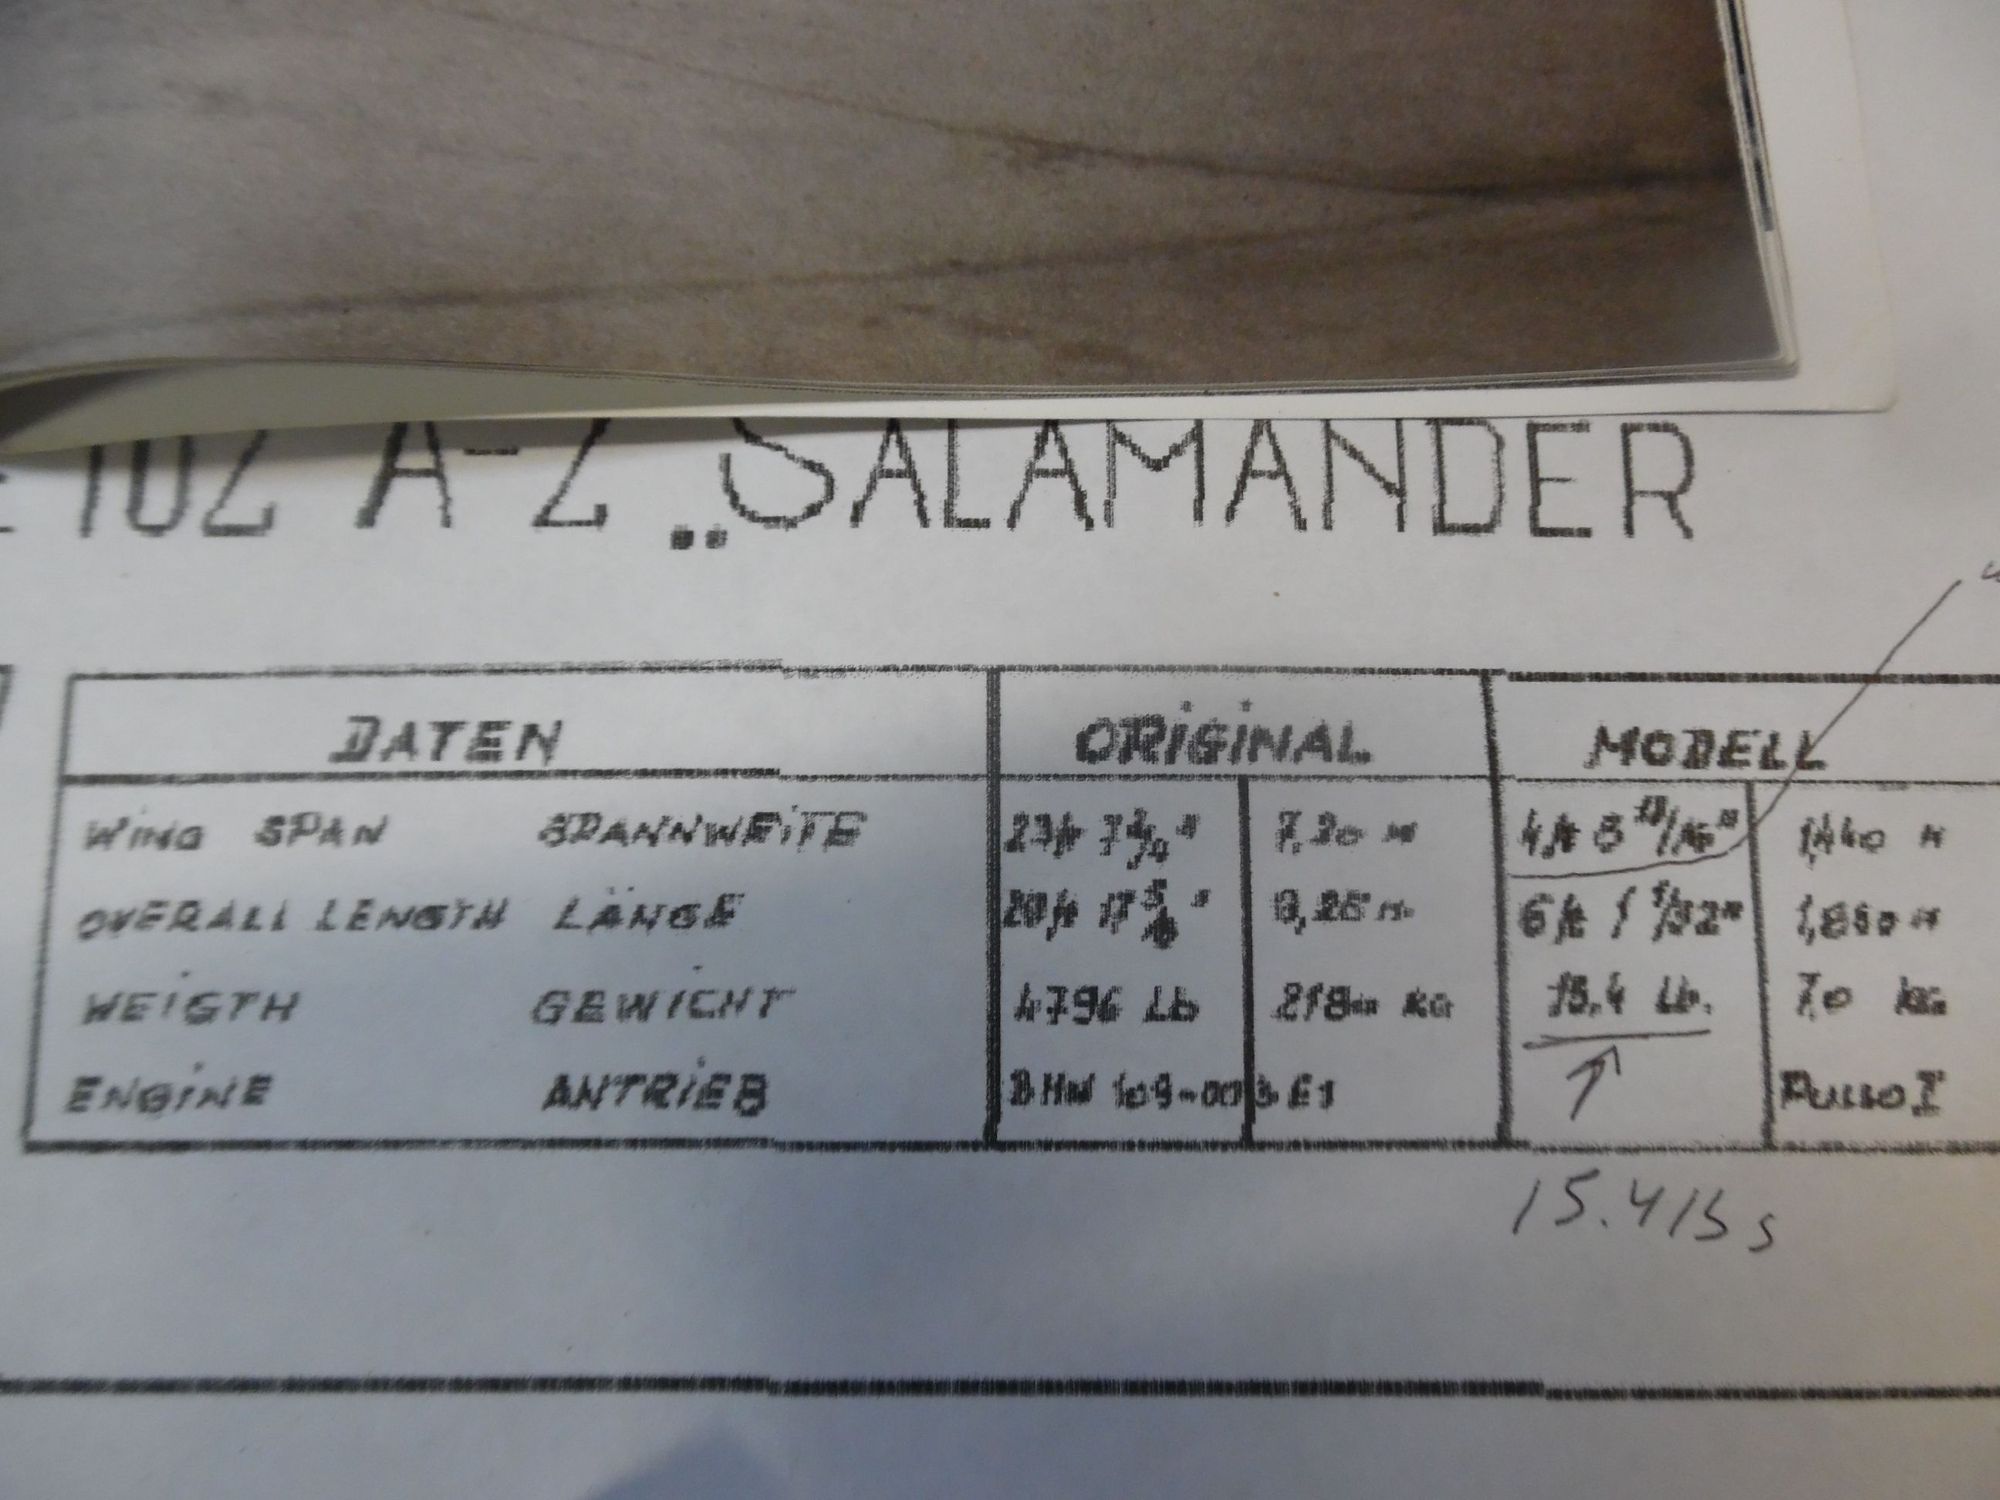 102 A-2 „SALAMANDER
DATEN ORiGiNAL MODELL
WiNG SPAN SPANNWEiTE 23ft 7 3/4" 7,20 M 4ft 8 11/16" 1,440 M
OVERALL LENGTH LÄNGE 6ft 1 1/32" M
WEiGTH GEWiCHT 4796 Lb KG 15.4 Lb. 7,0 KG
ENGiNE ANTRiEB 109-003 E1
15.4 lbs